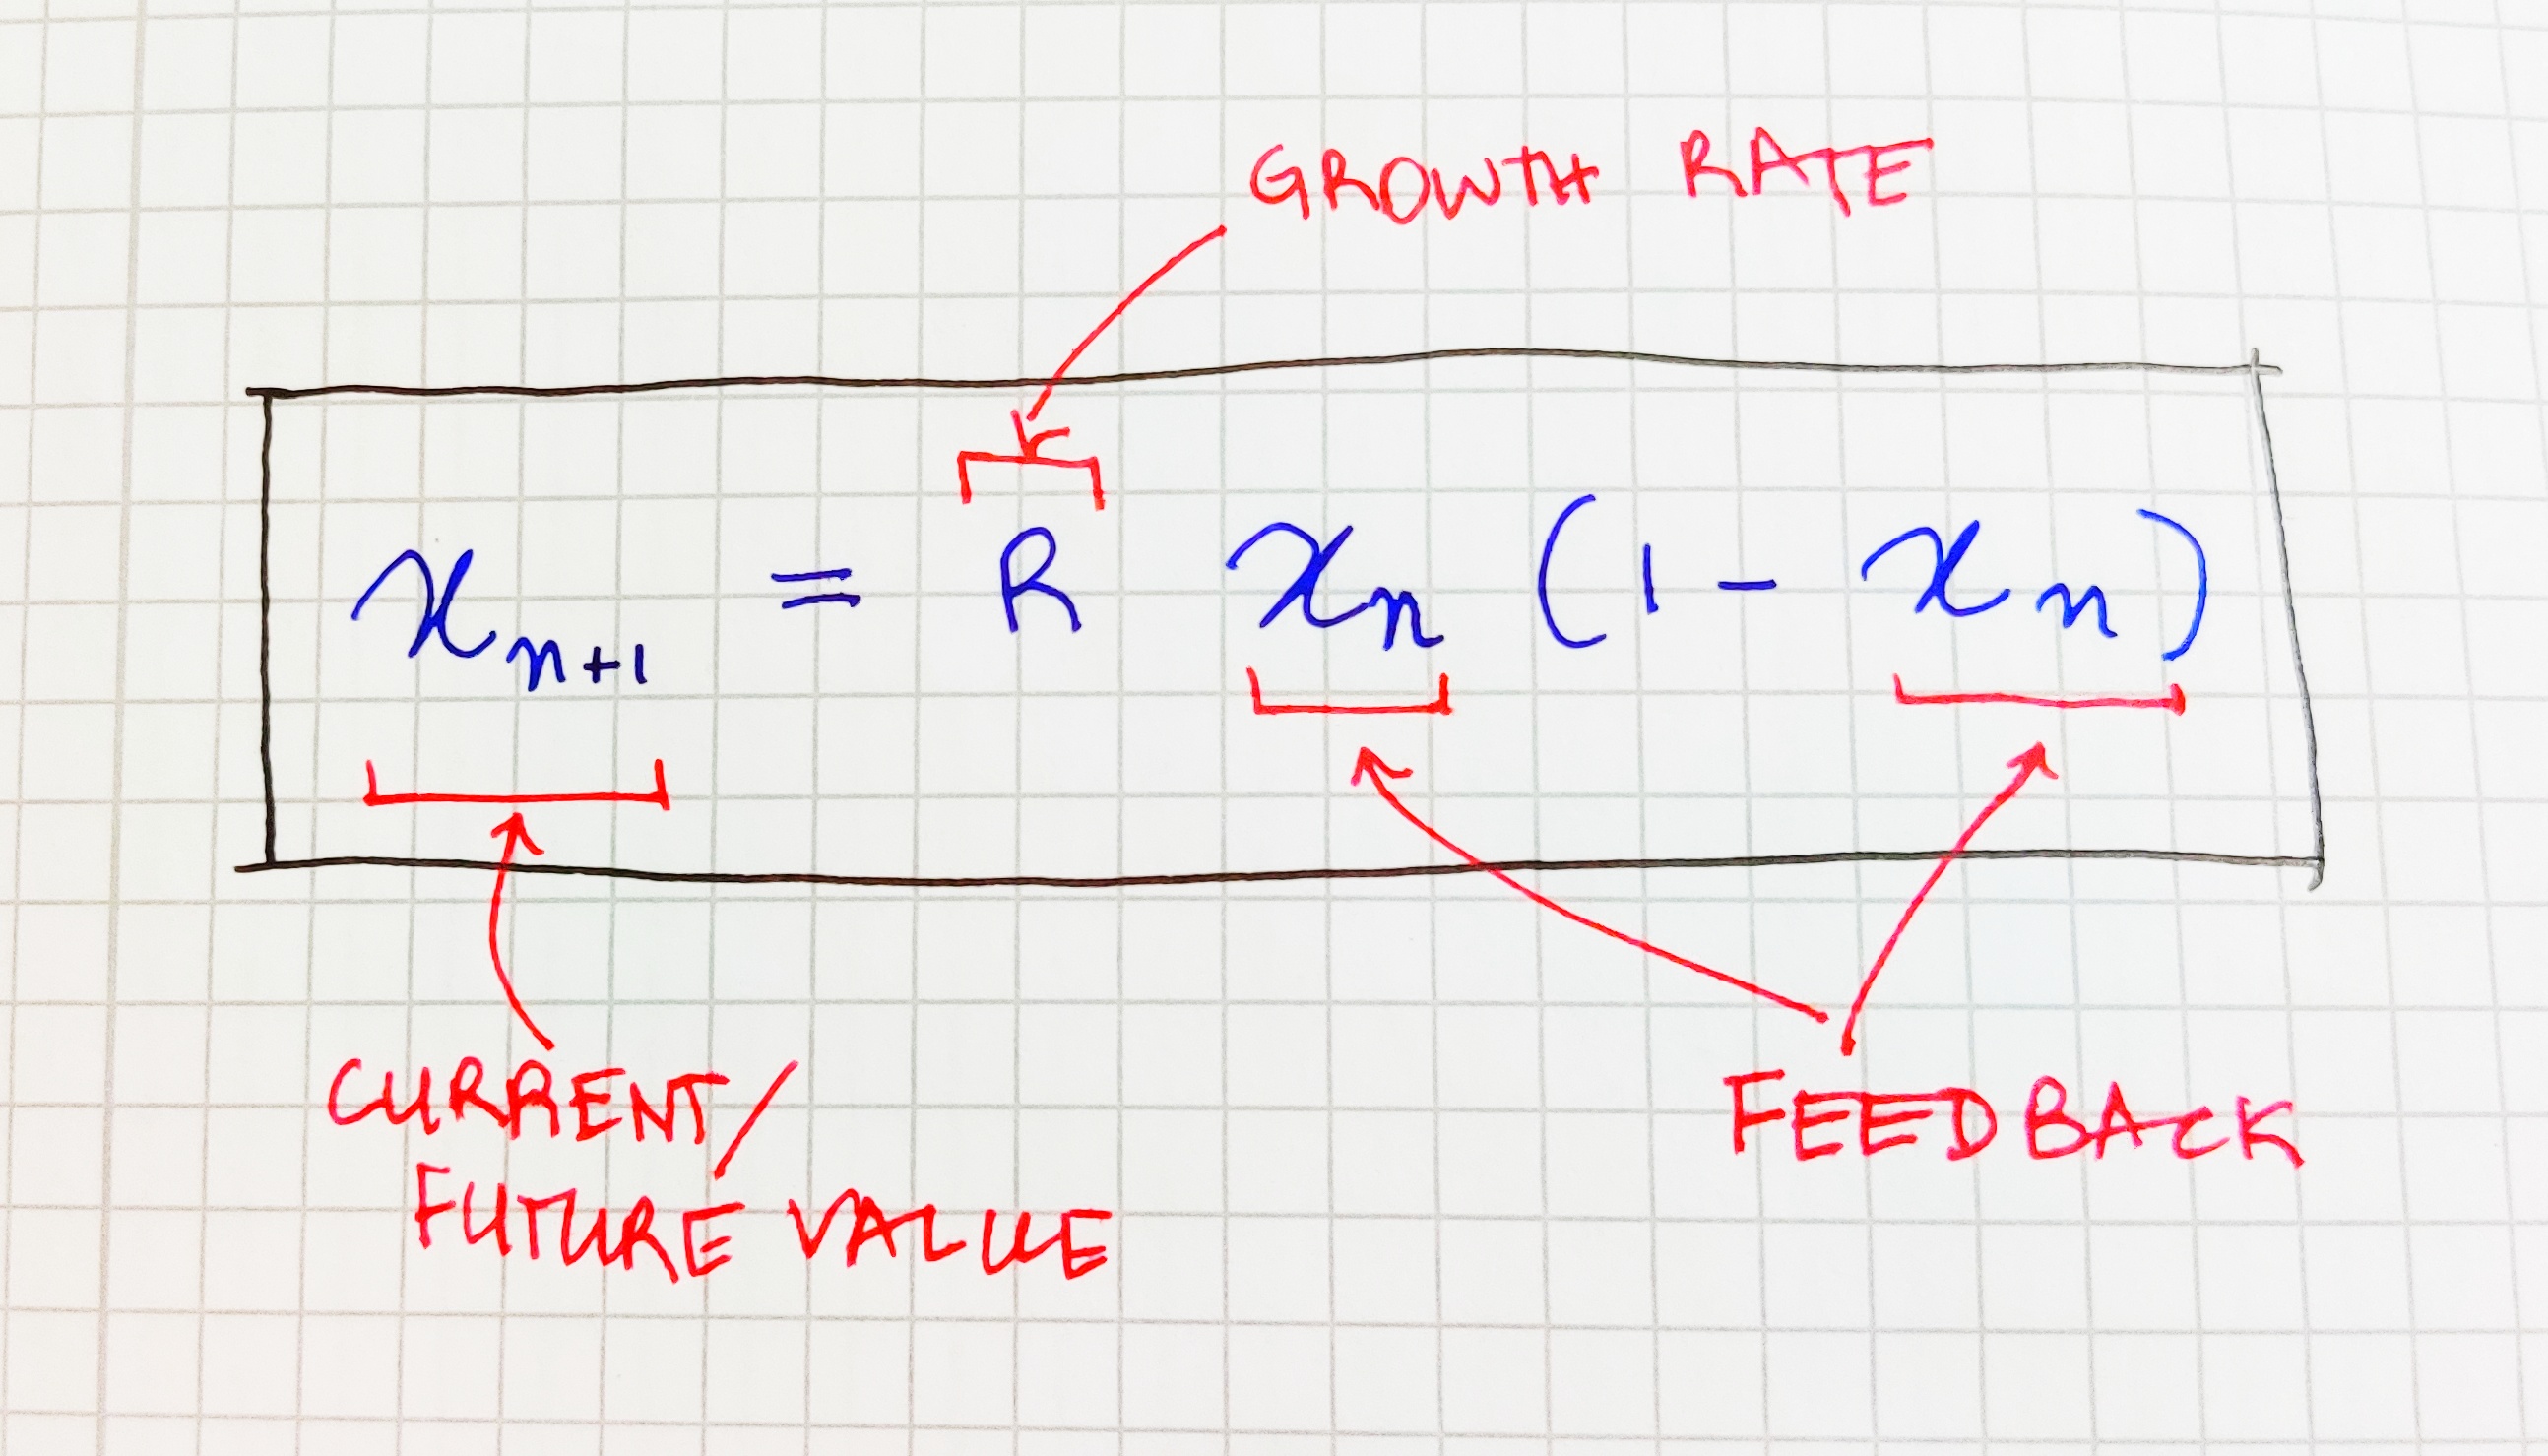 GROWTH RATE
x_{n+1} = R x_n (1 - x_n)
CURRENT/
FUTURE VALUE
FEEDBACK